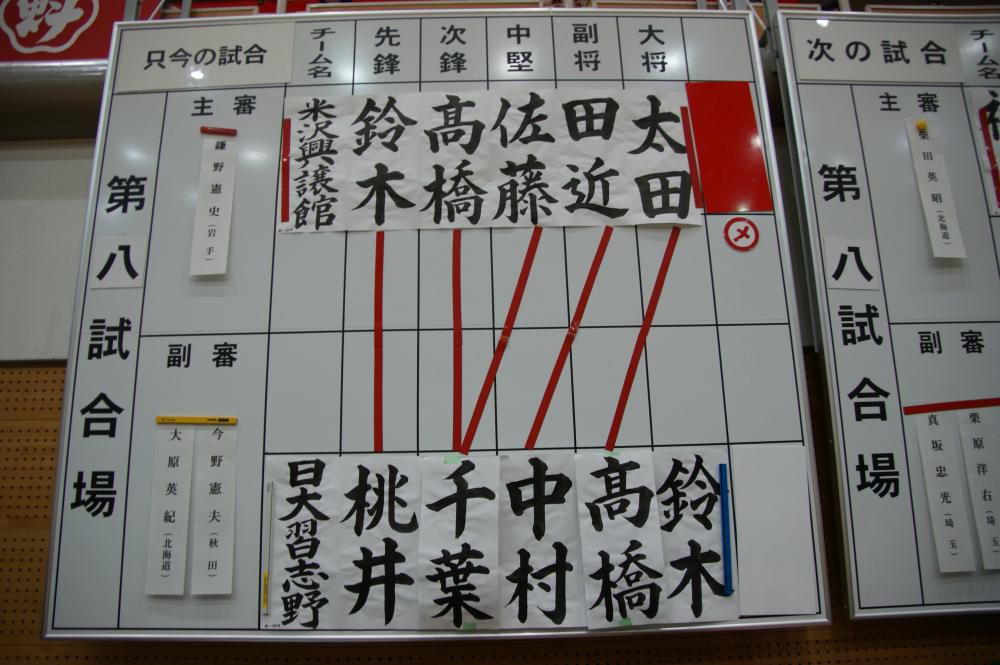 只今の試合
チーム名
先鋒
次鋒
中堅
副将
大将
第八試合場
主審
鎌野憲史(岩手)
副審
今野憲夫(秋田)
大原英紀(北海道)
米沢興譲館
鈴木
髙橋
佐藤
田近
太田
メ
日大習志野
桃井
千葉
中村
髙橋
鈴木
次の試合
チーム名
第八試合場
主審
柴田英昭(北海道)
副審
栗原洋右(埼玉)
真坂忠光(埼玉)